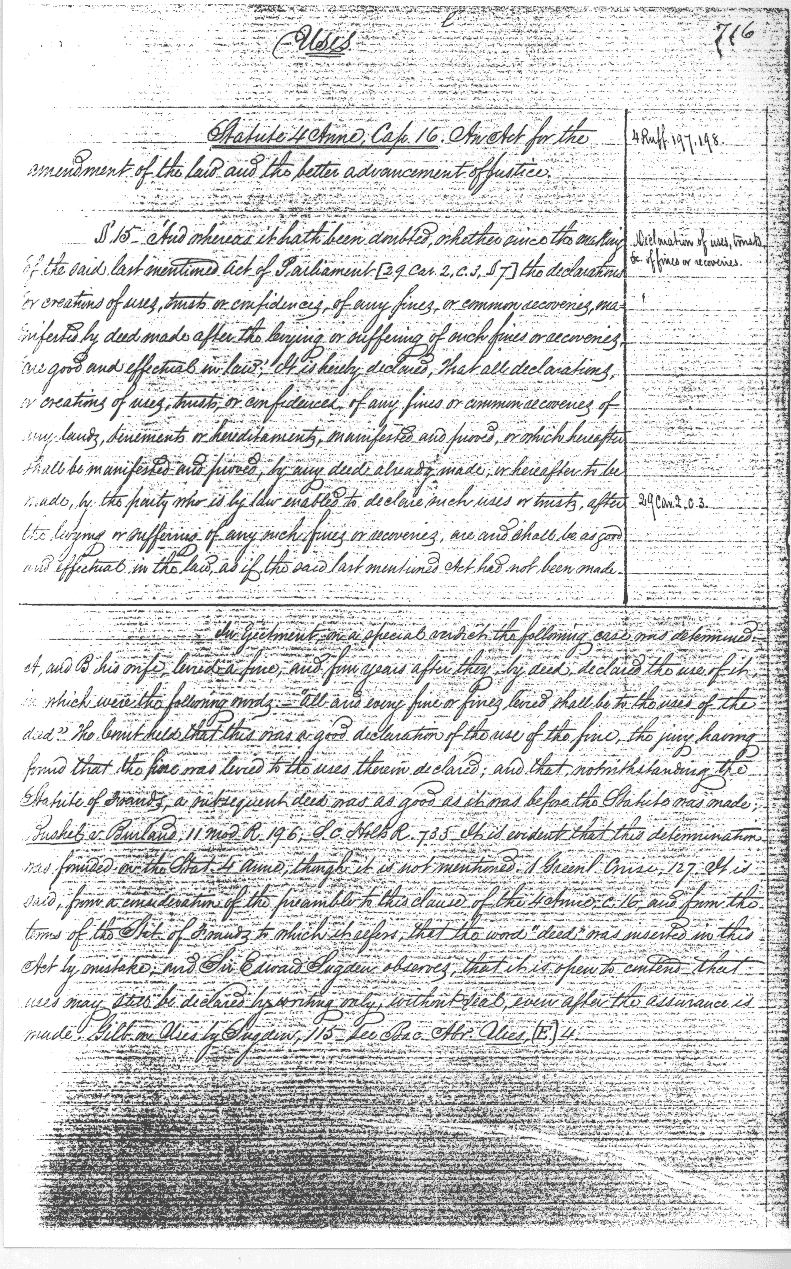 Uses
716
Statute 4 Anne, Cap. 16. An Act for the
4 Ruff. 197. 198.
amendment of the law and the better advancement of justice.
§ 15 - "And whereas it hath been doubted, whether since the making
Declaration of uses, trusts
of the said last mentioned Act of Parliament [29 Car. 2, c. 3, § 7] the declarations
&c. of fines or recoveries.
or creations of uses, trusts or confidences, of any fines, or common recoveries, ma=
nifested by deed made after the levying or suffering of such fines or recoveries,
are good and effectual in law;" It is hereby declared, That all declarations,
or creations of uses, trusts, or confidences, of any fines or common recoveries of
any lands, tenements or hereditaments, manifested and proved, or which hereafter
shall be manifested and proved, by any deed already made, or hereafter to be
made, by the party who is by law enabled to declare such uses or trusts, after
29 Car. 2. c. 3.
the levying or suffering of any such fines or recoveries, are and shall be as good
and effectual in the law, as if the said last mentioned Act had not been made.
In Ejectment, on a special verdict, the following case was determined:-
A, and B his wife, levied a fine, and, four years after they, by deed, declared the use of it,
in which were the following words:- "all and every fine or fines levied shall be to the uses of the
deed". The Court held that this was a good declaration of the use of the fine, the jury having
found that the fine was levied to the uses therein declared; and that, notwithstanding the
Statute of Frauds, a subsequent deed was as good as it was before the Statute was made;
Bushel v. Burland, 11 Mod. R. 196; S.C. Holt R. 733. It is evident that this determination
was founded on the Stat. 4 Anne, though it is not mentioned. 1 Greenl. Cruise, 127. It is
said, from a consideration of the preamble to this clause of the 4 Anne, c. 16, and from the
terms of the Stat. of Frauds to which it refers, that the word "deed" was inserted in this
Act by mistake; and Sir Edward Sugden observes, that it is open to contend that
uses may still be declared by writing only, without seal, even after the assurance is
made. Gilb. on Uses by Sugden, 115. See Bac. Abr. Uses, [E.] 4.